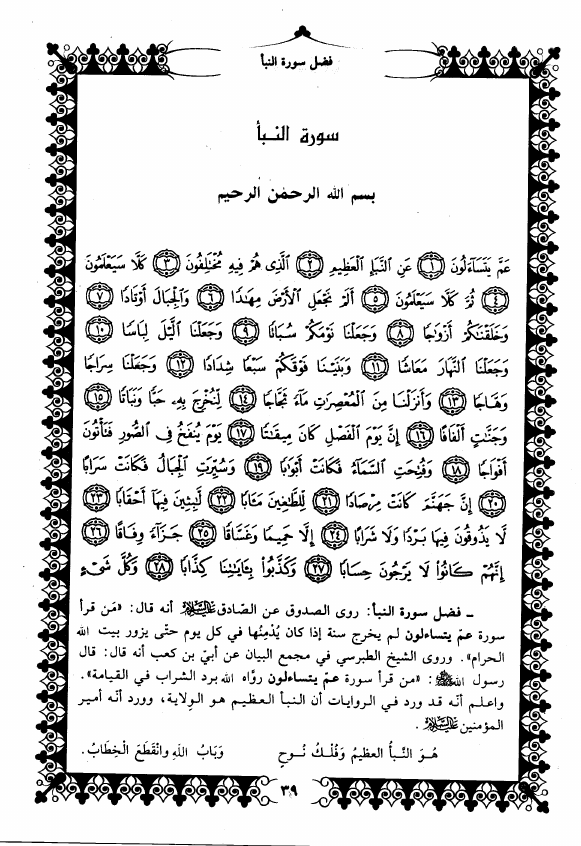 فضل سورة النبأ
سورة النبأ
بسم الله الرحمٰن الرحيم
عَمَّ يَتَسَاءَلُونَ ﴿١﴾ عَنِ النَّبَإِ الْعَظِيمِ ﴿٢﴾ الَّذِي هُمْ فِيهِ مُخْتَلِفُونَ ﴿٣﴾ كَلَّا سَيَعْلَمُونَ
﴿٤﴾ ثُمَّ كَلَّا سَيَعْلَمُونَ ﴿٥﴾ أَلَمْ نَجْعَلِ الْأَرْضَ مِهَٰدًا ﴿٦﴾ وَالْجِبَالَ أَوْتَادًا ﴿٧﴾
وَخَلَقْنَٰكُمْ أَزْوَٰجًا ﴿٨﴾ وَجَعَلْنَا نَوْمَكُمْ سُبَاتًا ﴿٩﴾ وَجَعَلْنَا الَّيْلَ لِبَاسًا ﴿١٠﴾
وَجَعَلْنَا النَّهَارَ مَعَاشًا ﴿١١﴾ وَبَنَيْنَا فَوْقَكُمْ سَبْعًا شِدَادًا ﴿١٢﴾ وَجَعَلْنَا سِرَاجًا
وَهَّاجًا ﴿١٣﴾ وَأَنزَلْنَا مِنَ الْمُعْصِرَٰتِ مَاءً ثَجَّاجًا ﴿١٤﴾ لِنُخْرِجَ بِهِ حَبًّا وَنَبَاتًا ﴿١٥﴾
وَجَنَّٰتٍ أَلْفَافًا ﴿١٦﴾ إِنَّ يَوْمَ الْفَصْلِ كَانَ مِيقَٰتًا ﴿١٧﴾ يَوْمَ يُنفَخُ فِي الصُّورِ فَتَأْتُونَ
أَفْوَاجًا ﴿١٨﴾ وَفُتِحَتِ السَّمَاءُ فَكَانَتْ أَبْوَٰبًا ﴿١٩﴾ وَسُيِّرَتِ الْجِبَالُ فَكَانَتْ سَرَابًا
﴿٢٠﴾ إِنَّ جَهَنَّمَ كَانَتْ مِرْصَادًا ﴿٢١﴾ لِلطَّٰغِينَ مَـَٔابًا ﴿٢٢﴾ لَّٰبِثِينَ فِيهَا أَحْقَابًا ﴿٢٣﴾
لَا يَذُوقُونَ فِيهَا بَرْدًا وَلَا شَرَابًا ﴿٢٤﴾ إِلَّا حَمِيمًا وَغَسَّاقًا ﴿٢٥﴾ جَزَاءً وِفَاقًا ﴿٢٦﴾
إِنَّهُمْ كَانُوا لَا يَرْجُونَ حِسَابًا ﴿٢٧﴾ وَكَذَّبُوا بِـَٔايَٰتِنَا كِذَّابًا ﴿٢٨﴾ وَكُلَّ شَيْءٍ
ـ فضل سورة النبأ: روى الصدوق عن الصادق عليه السلام أنه قال: «مَن قرأ
سورة عمّ يتساءلون لم يخرج سنة إذا كان يُدْمِنُها في كل يوم حتّى يزور بيت الله
الحرام». وروى الشيخ الطبرسي في مجمع البيان عن أبيّ بن كعب أنه قال: قال
رسول الله ﷺ: «من قرأ سورة عمّ يتساءلون روّاه الله برد الشراب في القيامة».
واعلم أنّه قد ورد في الروايات أن النبأ العظيم هو الولاية، وورد أنّه أمير
المؤمنين عليه السلام.
هُـوَ النَّبأُ العظيمُ وَفُلْكُ نُـوحٍ وَبَابُ اللهِ وانْقَطَعَ الْخِطَابُ.
٣٩